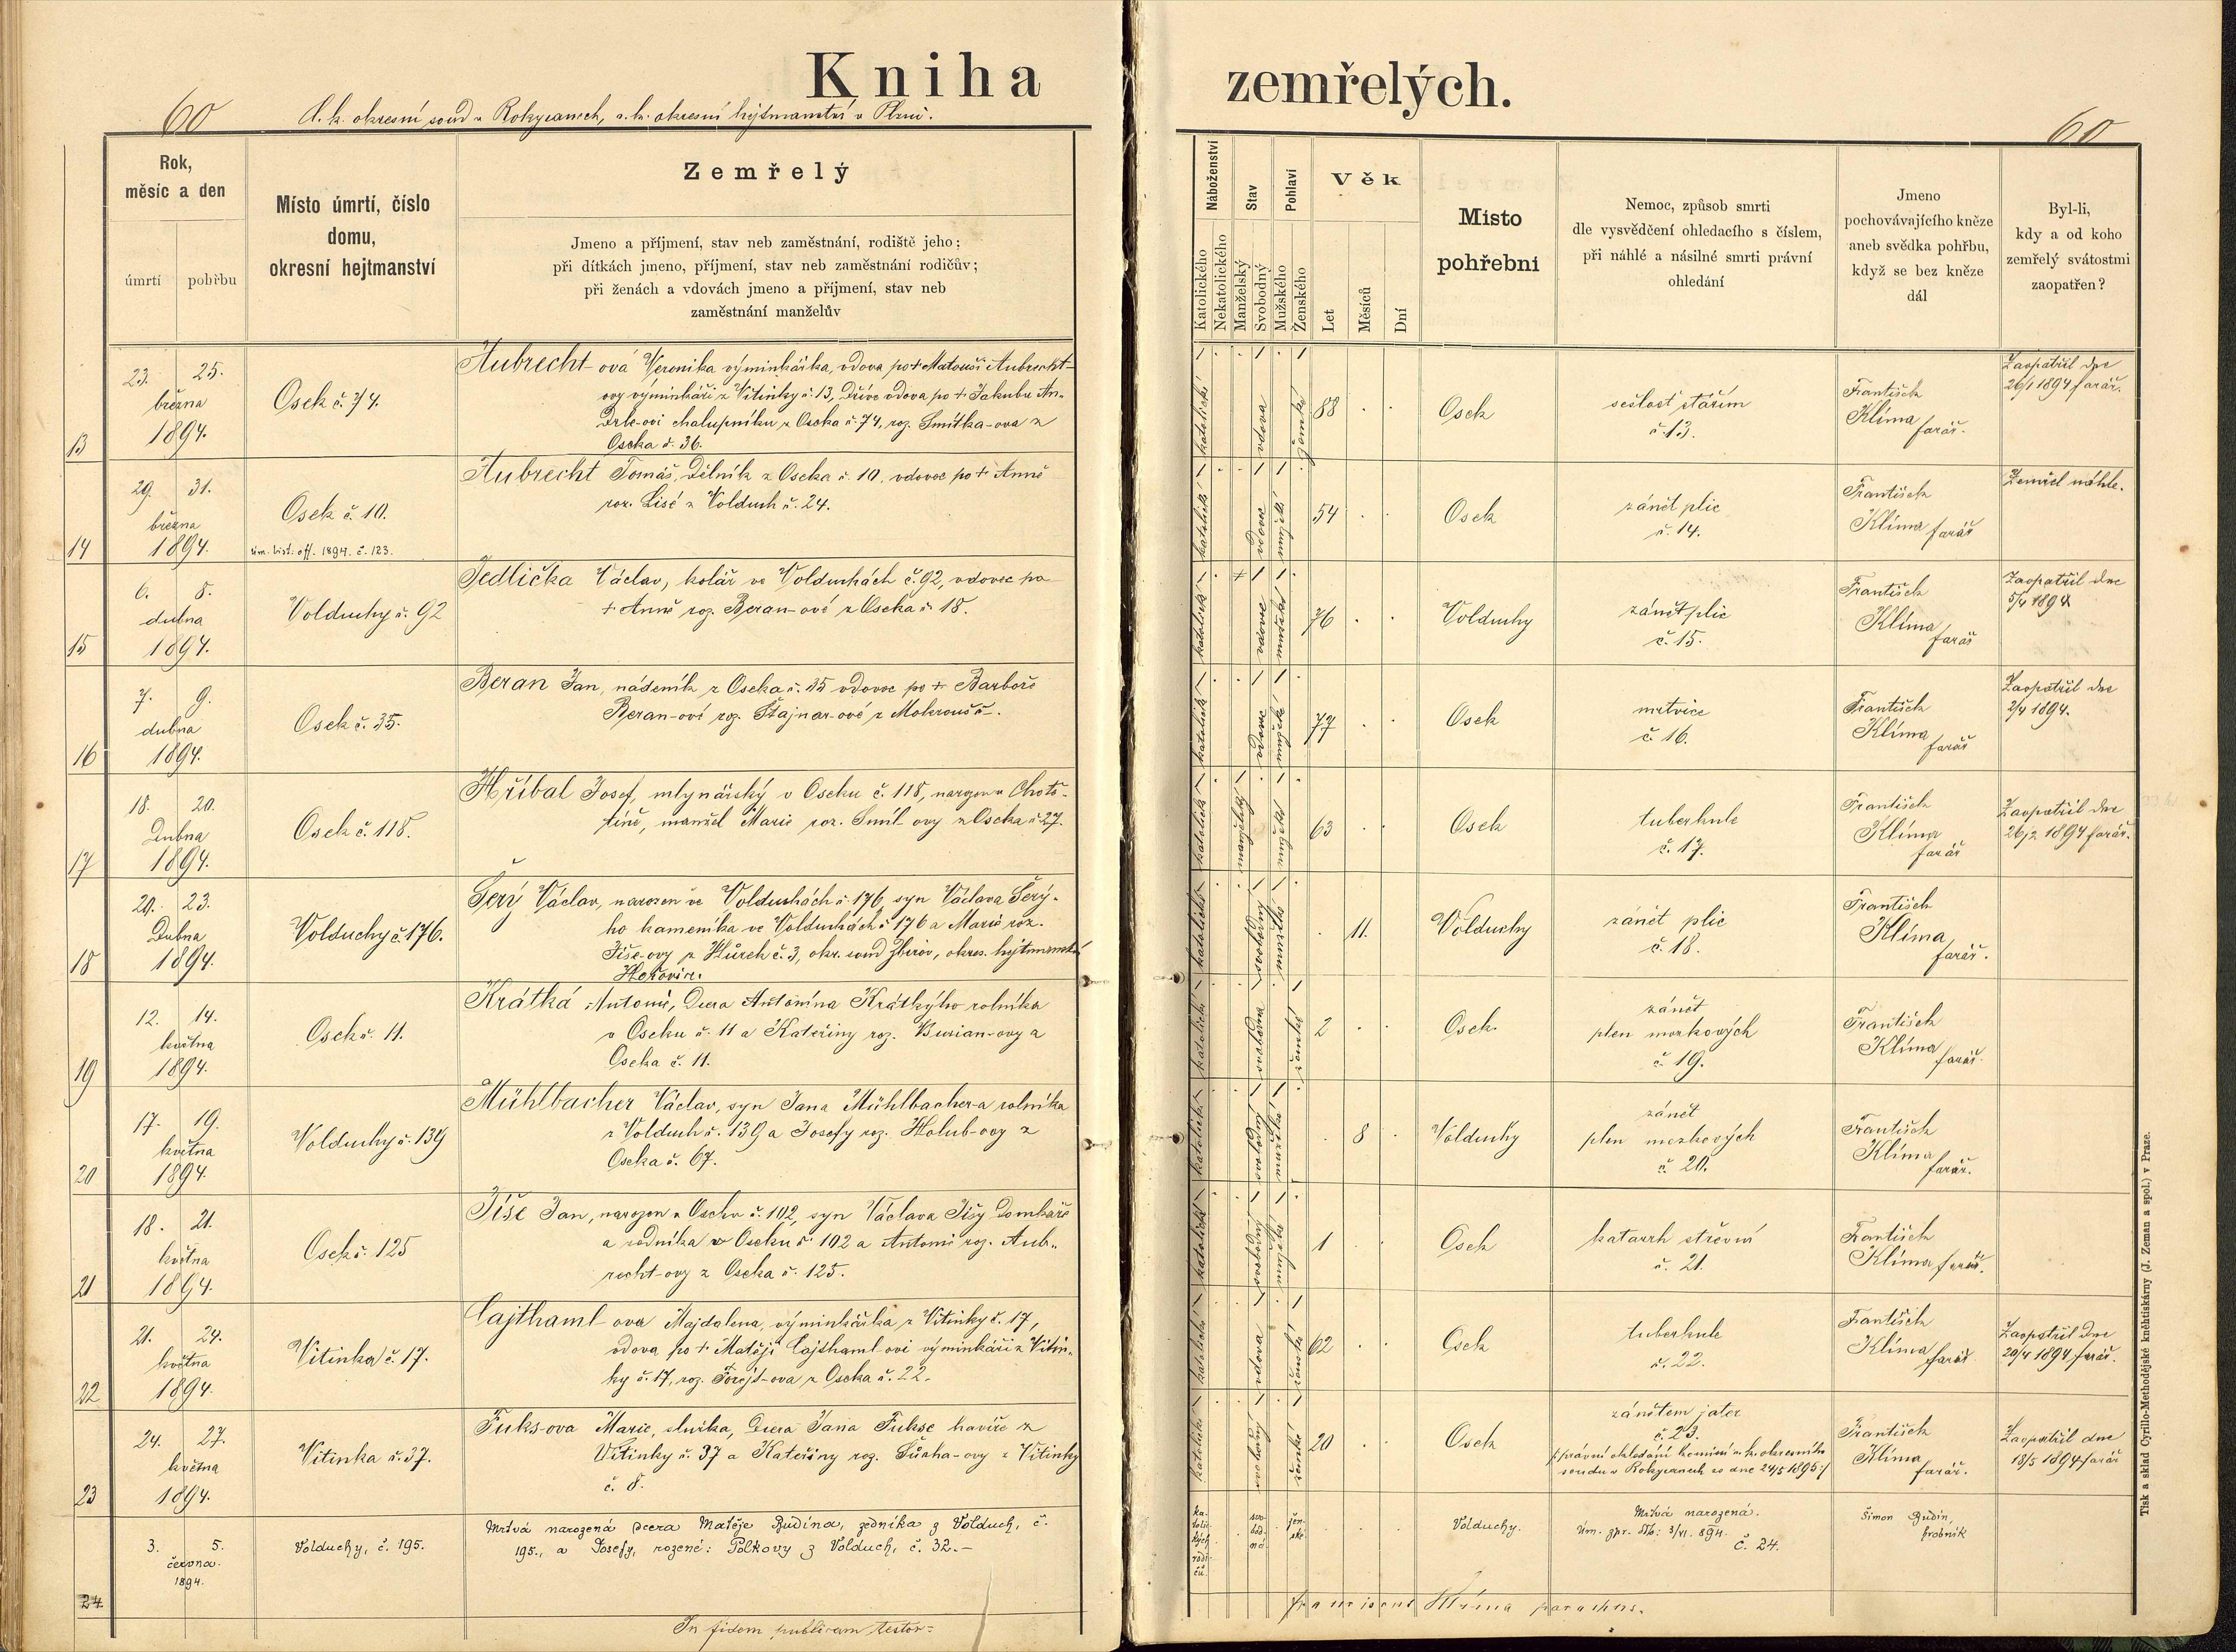 Kniha zemřelých.
60
C. k. okresní soud v Rokycanech, c. k. okresní hejtmanství v Plzni.
60
Rok,
měsíc a den
úmrtí
pohřbu
Místo úmrtí, číslo
domu,
okresní hejtmanství
Zemřelý
Jmeno a příjmení, stav neb zaměstnání, rodiště jeho;
při dítkách jmeno, příjmení, stav neb zaměstnání rodičův;
při ženách a vdovách jmeno a příjmení, stav neb
zaměstnání manželův
Náboženství
Katolického
Nekatolického
Stav
Manželský
Svobodný
Pohlaví
Mužského
Ženského
Věk
Let
Měsíců
Dní
Místo
pohřební
Nemoc, způsob smrti
dle vysvědčení ohledacího s číslem,
při náhlé a násilné smrti právní
ohledání
Jmeno
pochovávajícího kněze
aneb svědka pohřbu,
když se bez kněze
dál
Byl-li,
kdy a od koho
zemřelý svátostmi
zaopatřen?
13
23. 25.
března
1894.
Osek č. 74.
Aubrecht-ová Veronika výminkářka, vdova po + Matouši Aubrecht-
ovy výminkáři z Vitinky č. 13, Dříve vdova po + Jakubu An-
Drle-ovi chalupníku z Oseka č. 74, roz. Smítka-ova z
Oseka č. 36.
katolické
vdova
ženské
88
Osek
sešlost stářím
č. 13.
František
Klíma farář.
Zaopatřil dne
26/1 1894 farář.
14
29. 31.
března
1894.
Osek č. 10.
úm. list. off. 1894. č. 123.
Aubrecht Tomáš, Dělník z Oseka č. 10, vdovec po + Anně
roz. Lisé z Volduch č. 24.
katolické
vdovec
mužské
54
Osek
zánět plic
č. 14.
František
Klíma farář
Zemřel náhle.
15
6. 8.
dubna
1894.
Volduchy č. 92
Jedlička Václav, kolář ve Volduchách č. 92, vdovec po
+ Anně roz. Beran-ové z Oseka č. 18.
katolické
vdovec
mužské
76
Volduchy
zánět plic
č. 15.
František
Klíma
farář
Zaopatřil dne
5/4 1894
16
7. 9.
dubna
1894.
Osek č. 35.
Beran Jan, nádeník z Oseka č. 35 vdovec po + Barboře
Beran-ové roz. Štajnar-ové z Mokrouš č –.
katolické
vdovec
mužské
77
Osek
mrtvice
č. 16.
František
Klíma
farář
Zaopatřil dne
2/4 1894.
17
18. 20.
Dubna
1894.
Osek č. 118.
Hříbal Josef, mlynářský v Oseku č. 118, narozen v Chotě-
tíně, manžel Marie roz. Smíl-ovy z Oseka č. 27.
katolické
manželský
mužské
63
Osek
tuberkule
č. 17.
František
Klíma
farář
Zaopatřil dne
26/2 1894 farář.
18
20. 23.
Dubna
1894.
Volduchy č. 176.
Šerý Václav, narozen ve Volduchách č. 176, syn Václava Šerý-
ho kameníka ve Volduchách č. 176 a Marie roz.
Jíše-ovy z Hůrek č. 3, okr. soud Zbirov, okres. hejtmanství
Hořovice.
katolické
svobodný
mužské
11.
Volduchy
zánět plic
č. 18.
František
Klíma
farář.
19
12. 14.
května
1894.
Osek č. 11.
Krátká Antonie, Dcera Antonína Krátkýho rolníka
v Oseku č. 11 a Kateřiny roz. Burian-ovy z
Oseka č. 11.
katolické
svobodná
ženské
2
Osek.
zánět
plen mozkových
č. 19.
František
Klíma
farář.
20
17. 19.
května
1894.
Volduchy č. 139
Mühlbacher Václav, syn Jana Mühlbacher-a rolníka
z Volduch č. 139 a Josefy roz. Holub-ovy z
Oseka č. 67.
katolické
svobodný
mužské
8
Volduchy
zánět
plen mozkových
č. 20.
František
Klíma
farář.
21
18. 21.
května
1894.
Osek č. 125
Jíše Jan, narozen v Oseku č. 102, syn Václava Jíšy Domkáře
a zedníka v Oseku č. 102 a Antonie roz. Aub-
recht-ovy z Oseka č. 125.
katolické
svobodný
mužské
1
Osek
katarrh střevní
č. 21.
František
Klíma farář.
22
21. 24.
května
1894.
Vitinka č. 17.
Cajthaml-ova Majdalena, výminkářka z Vitinky č. 17,
vdova po + Matěji Cajthaml-ovi výminkáři z Vitin-
ky č. 17, roz. Forejt-ova z Oseka č. 22.
katolické
vdova
ženské
62
Osek
tuberkule
č. 22.
František
Klíma farář
Zaopatřil dne
20/4 1894 farář.
23
24. 27.
května
1894.
Vitinka č. 37.
Fuks-ova Marie, služka, Dcera Jana Fukse havíře z
Vitinky č. 37 a Kateřiny roz.
Vitinky
č. 8.
katolické
svobodný
ženské
20
Osek
zánětem jater
č. 23.
/:právní ohledání komisí c. k. okresního
soudu v Rokycanech ze dne 24/5 1895:/
František
Klíma
farář.
Zaopatřil dne
18/5 1894 farář
24
3. 5.
června.
1894.
Volduchy, č. 195.
Mrtvá narozená dcera Matěje Budína, zedníka z Volduch, č.
195., a Josefy, rozené: Polkovy z Volduch, č. 32. –
ka-
tolic-
kých
rodi-
čů.
svo-
bod-
ná
žen-
ské
Volduchy.
Mrtvá narozená.
Úm. zpr. dto: 3/VI. 894.
č. 24.
Šimon Budín,
hrobník
In fidem publicam testor:
Franciscus Klíma parochus.
Tisk a sklad Cyrillo-Methodějské kněhtiskárny (J. Zeman a spol.) v Praze.